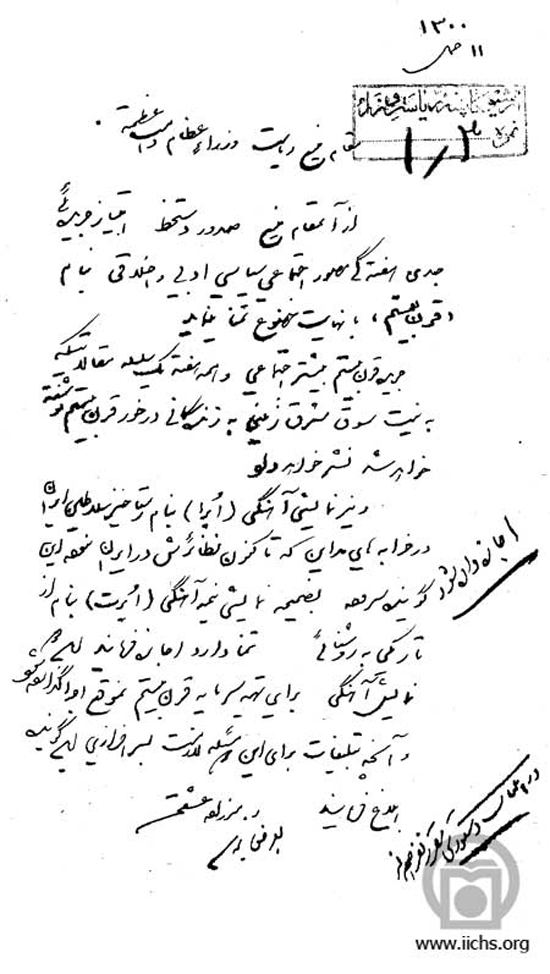 ۱۳۰۰
۱۱ حمل
آرشیو کابینه ریاست وزراء
نمره
مقام منیع ریاست وزراء عظام دامت عظمته
از آنمقام منیع صدور دستخط امتیاز جریدهٔ
جدی هفتگی مصور اجتماعی سیاسی ادبی و اخلاقی بنام
«قرن بیستم» با نهایت خضوع تمنا مینماید
جریده قرن بیستم بیشتر اجتماعی و همه هفته یک سلسله مقالاتیکه
به نیت سوق مشرق زمین به زندگانی درخور قرن بیستم نوشته
خواهد شد نشر خواهد داد
و نیز نمایش آهنگی (اپرا) بنام رستاخیز سلاطین ایران
در خرابه های مداین که تا کنون نظائرش در ایران صحنه این
گوینده بضمیمه نمایش نیمه آهنگی (اپرت) بنام از
تاریکی به روشنائی تمنا دارد اجازه فرمایند
نمایش آهنگی برای تهیه سرمایه قرن بیستم بموقع
و آنچه تبلیغات برای این مسئله لازمست
ابلاغ فرمایند
میرزاده عشقی
اجازه داده شود
www.iichs.org